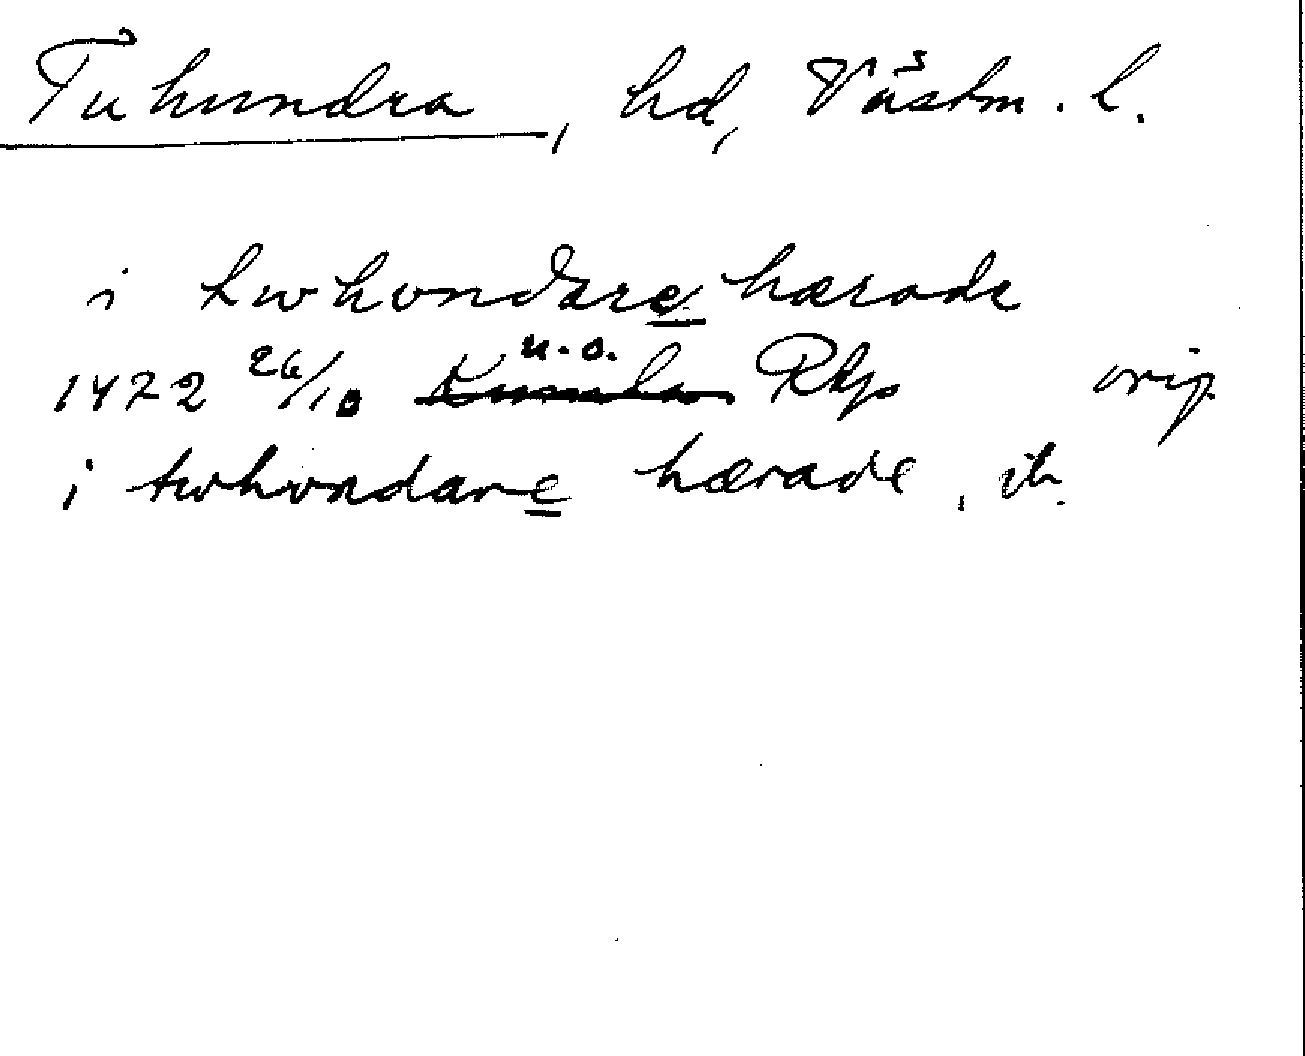 Tuhundra, hd, Västm. l.
i twhvndare hærade
1472 26/10 u.o. Kumla Rkp orig.
i twhvndare hærade, ib.